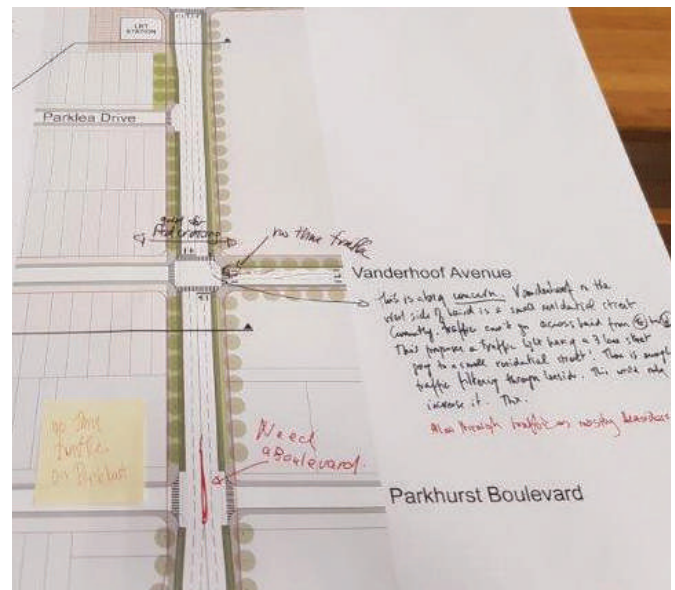 LRT
STATION
Parklea Drive
good for
Ped crossing
no thru traffic
Vanderhoof Avenue
This is a big concern. Vanderhoof on the
west side of Laird is a small residential street
Currently traffic can't go across Laird from E to W
This proposes a traffic light having a 3 lane street
going to a small residential street! There is enough
traffic filtering through Leaside. This will only
increase it. Thx.
Also through traffic on
no thru
traffic
on Parkhurst
Need
a Boulevard.
Parkhurst Boulevard